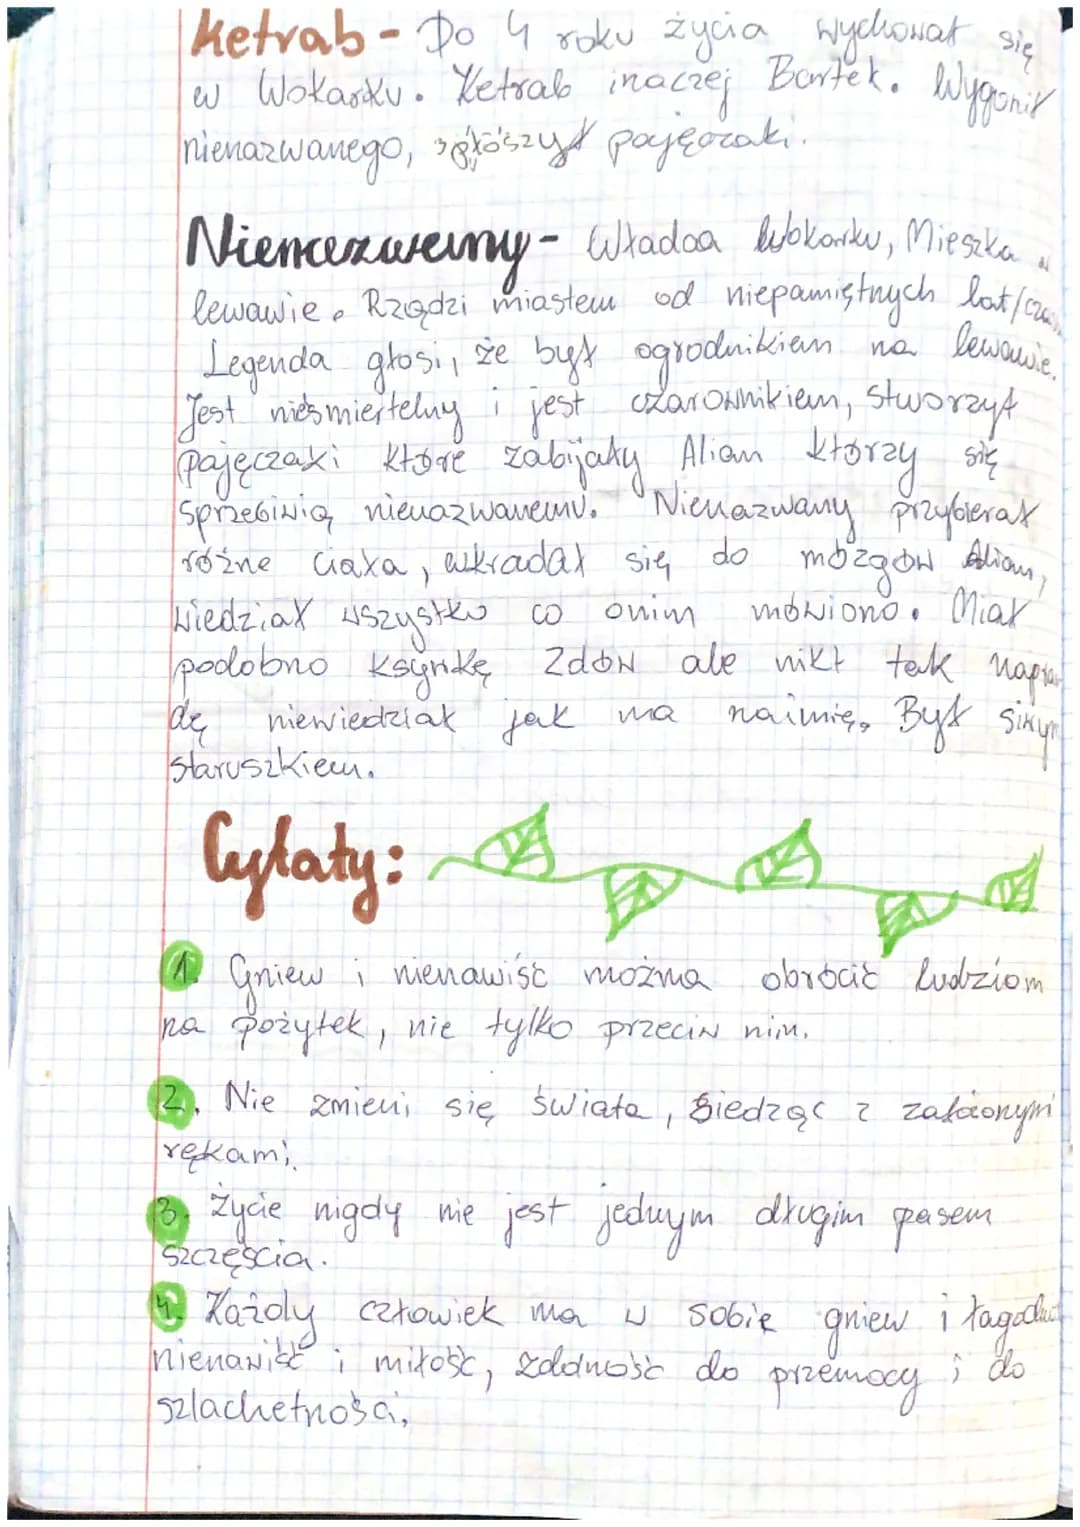 Ketrab - Do 4 roku życia wychował się
w Wokarku. Ketrab inaczej Bartek. Wygonił
nienazwanego, spłoszył pajęczaki.
Nienazwany - Władca Wokarku, Mieszka w
lewawie. Rządzi miastem od niepamiętnych lat/
Legenda głosi, że był ogrodnikiem na lewawie.
Jest nieśmiertelny i jest czarownikiem, stworzył
pajęczaki które zabijały Alian którzy się
sprzeciwią nienazwanemu. Nienazwany przybierał
różne ciała, wkradał się do mózgów Alian,
wiedział wszystko co onim mówiono. Miał
podobno ksywkę Zdów ale nikt tak napraw
dę niewiedział jak ma naimię. Był siwym
staruszkiem.
Cytaty:
1. Gniew i nienawiść można obrócić ludziom
na pożytek, nie tylko przeciw nim.
2. Nie zmieni się świata, siedząc z założonymi
rękami.
3. Życie nigdy nie jest jednym długim pasem
szczęścia.
4. Każdy człowiek ma w sobie gniew i
nienawiść i miłość, zdolność do przemocy i do
szlachetności,